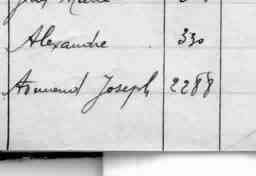 Marie
Alexandre 330
Armand Joseph 2288